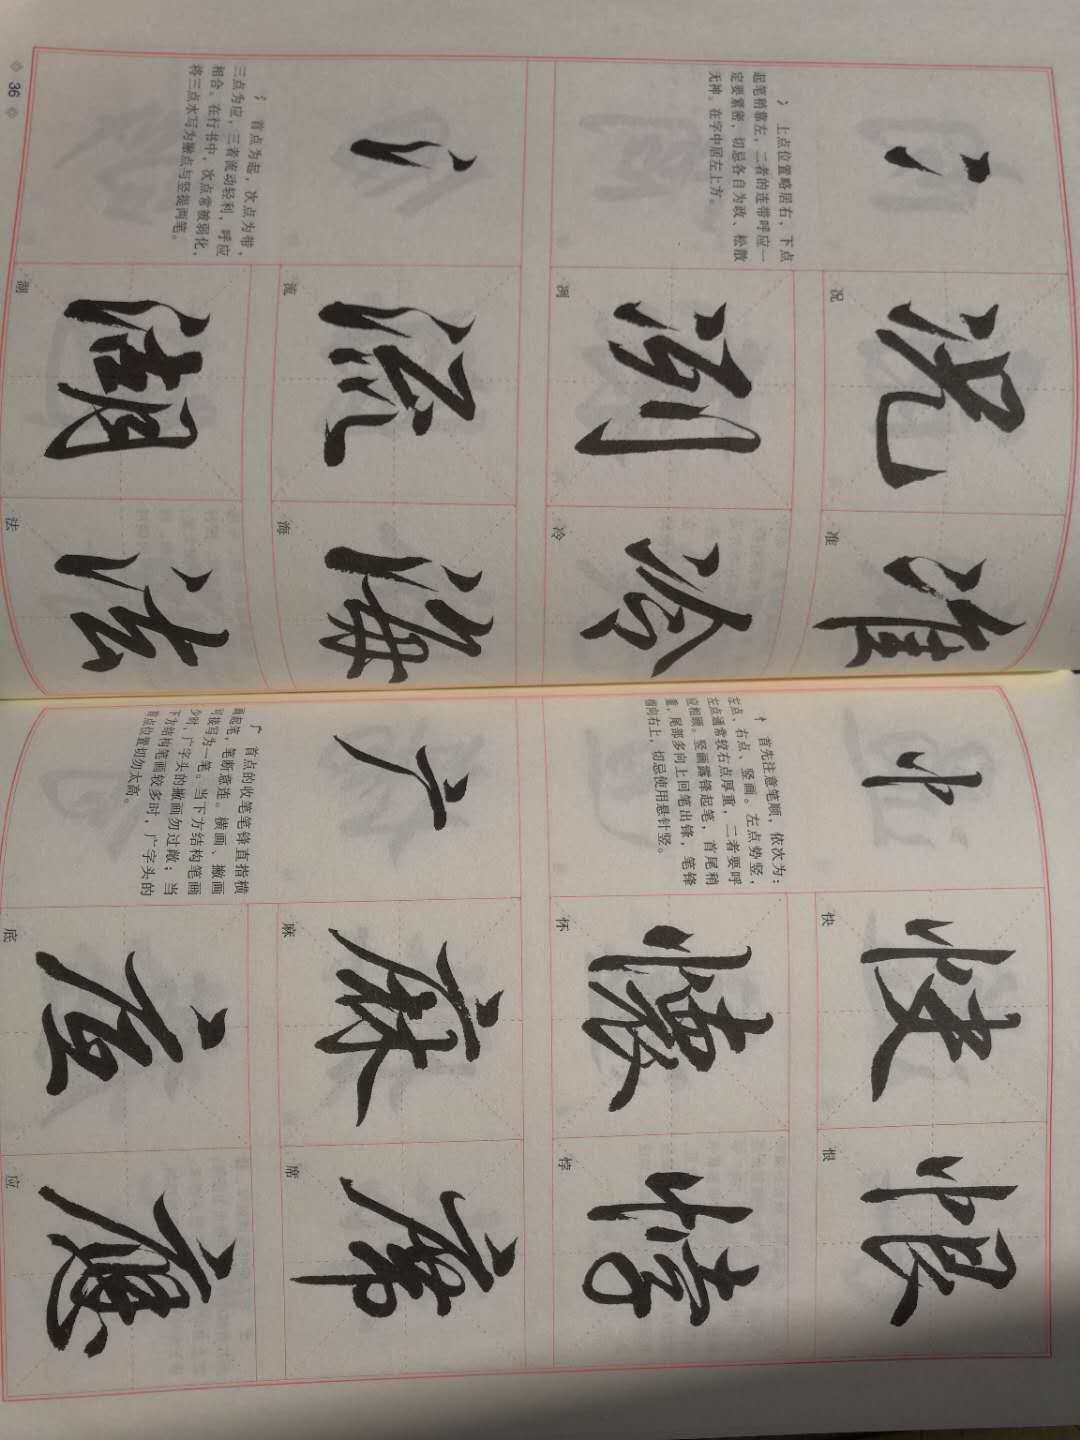 冫
冫 上点位置略居右，下点
起笔稍靠左，二者的连带呼应一
定要紧密，切忌各自为政、松散
无神。在字中居左上方。
况 准
况 准
冽 冷
冽 冷
氵
氵 首点为起，次点为带，
三点为应，三者流动轻利，呼应
相合。在行书中，次点常被弱化，
将三点水写为撇点与竖提两笔。
流 海
流 海
湖 法
湖 法
36
忄
忄 首先注意笔顺，依次为：
左点、右点、竖画。左点势竖，
左点通常较右点厚重，二者要呼
应相顾。竖画露锋起笔，首尾稍
重，尾部多向上回笔出锋，笔锋
指向右上，切忌使用悬针竖。
快 恨
快 恨
懷 悖
怀 悖
广
广 首点的收笔笔锋直指横
画起笔，笔断意连。横画、撇画
可接写为一笔。当下方结构笔画
少时，广字头的撇画勿过敞；当
下方结构笔画较多时，广字头的
首点位置切勿太高。
麻 席
麻 席
底 應
底 应